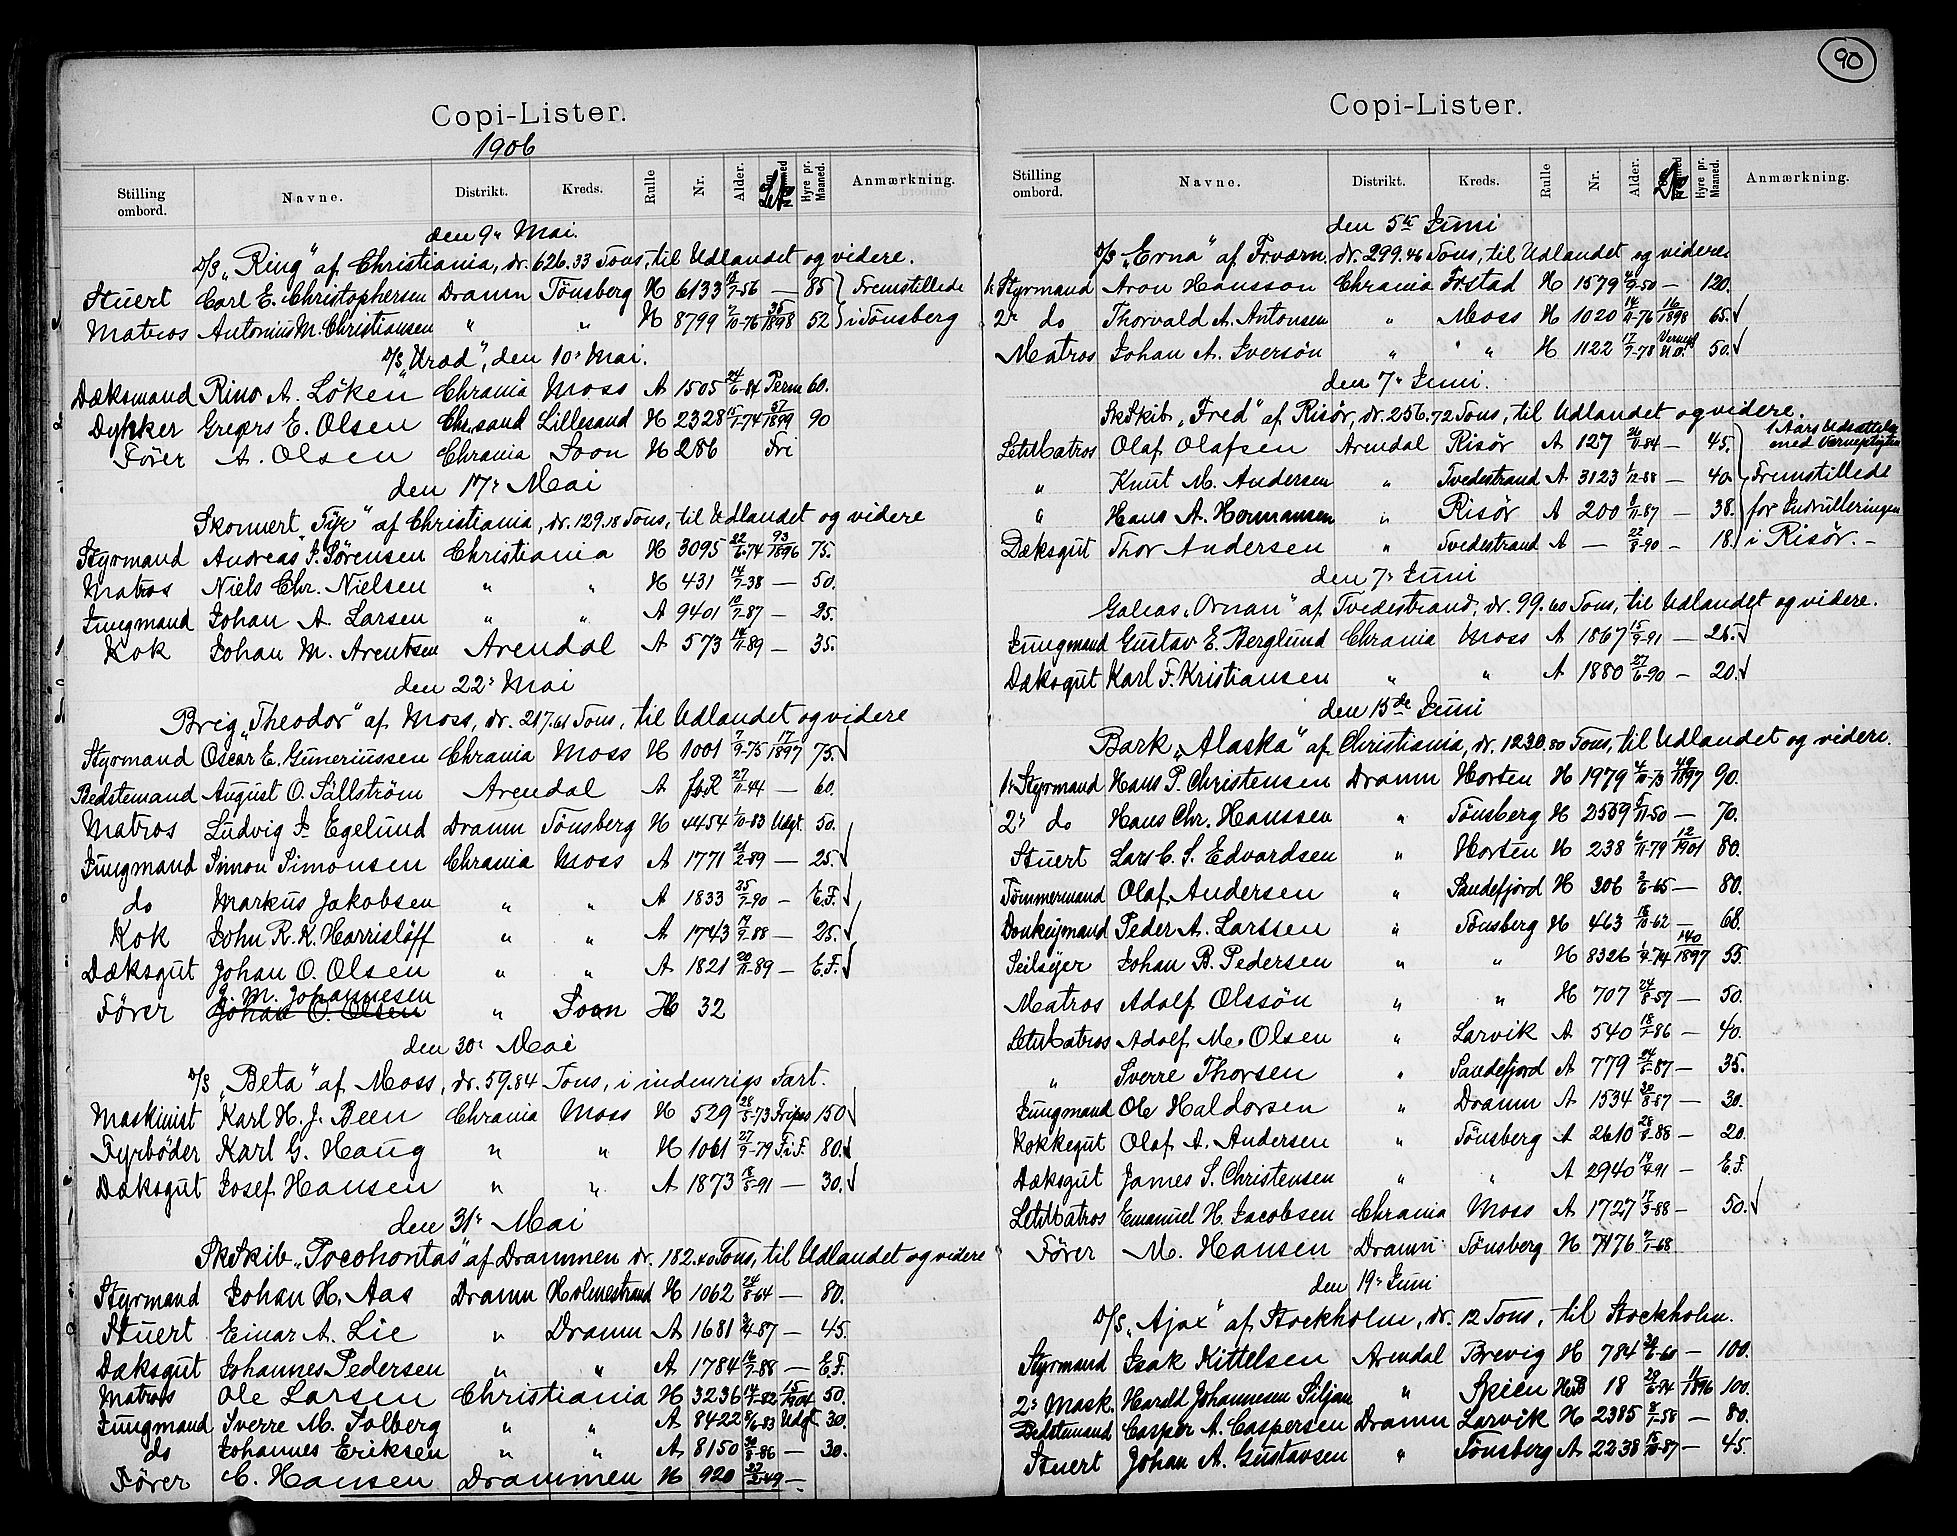 Copi-Lister.
1906
Stilling ombord. Navne. Distrikt. Kreds. Rulle Nr. Alder. Hyre pr. Maaned. Anmærkning.
den 9' Mai.
D/S „Ring" af Christiania, dr. 626.33 Tons, til Udlandet og videre.
Stuert Carl E. Christophersen Dramn Tönsberg H 6133 -56 — 85 Fremstillede
Matros Antonius M. Christiansen " " H 8799 /10-76 38/1898 52 i Tönsberg
D/S „Urad", den 10' Mai.
Dæksmand Rino A. Löken Chrania Moss A 1505 24/6-84 Perm 60.
Dykker Gregers E. Olsen Chr.sand Lillesand H 2328 15/7-74 57/1899 90
Förer A. Olsen Chrania Soon H 286 Fri
den 17' Mai
Skonnert „Tyr" af Christiania, dr. 129.18 Tons, til Udlandet og videre
Styrmand Andreas J. Sörensen Christiania H 3095 22/6-74 93/1896 75.
Matros Niels Chr. Nielsen " " H 431 14/7-38 — 50.
Jungmand Johan A. Larsen " " A 9401 10/7-87 — 25.
Kok Johan M. Arentsen Arendal A 573 14/11-89 — 35.
den 22' Mai
Brig „Theodor" af Moss, dr. 217.61 Tons, til Udlandet og videre
Styrmand Oscar E. Guneriussen Chrania Moss H 1001 7/9-75 17/1897 75.
Bedstemand August O. Sällström Arendal A 27/11-44 — 60.
Matros Ludvig J. Egelund Dramn Tönsberg H 4454 1/10-83 Udgt. 50.
Jungmand Simon Simonsen Chrania Moss A 1771 21/2-89 — 25.
do Markus Jakobsen " " A 1833 25/7-90 — E.F.
Kok John R. K. Harrislöff " " A 1743 17/9-88 — 25.
Dæksgut Johan O. Olsen " " A 1821 20/11-89 — E.F.
J. M. Johannesen
Förer Johan O. Olsen " Soon H 32
den 30' Mai
D/S „Beta" af Moss, dr. 59.84 Tons, i indenrigs Fart.
Maskinist Karl H. J. Been Chrania Moss H 529 28/5-73 Fripas 150
Fyrböder Karl G. Haug " " H 1061 27/9-79 Fi F. 80.
Dæksgut Josef Hansen " " A 1873 18/5-91 — 30.
den 31' Mai
SkSkib „Pocohontas" af Drammen dr. 182.40 Tons, til Udlandet og videre
Styrmand Johan H. Aas Dramn Holmestrand H 1062 24/8-64 — 80.
Stuert Einar A. Lie " Dramn A 1681 /4-87 — 45.
Dæksgut Johannes Pedersen " " A 1784 16/7-88 — E.F.
Matros Ole Larsen Christiania H 3236 14/7-82 15/1904 50.
Jungmand Sverre M. Solberg " " A 8422 /6-83 Udgt. 30.
do Johannes Eriksen " " A 8150 30/9-86 — 30.
Förer C. Hansen Drammen H 920 -49 —
90
Copi-Lister.
Stilling ombord. Navne. Distrikt. Kreds. Rulle Nr. Alder. Hyre pr. Maaned. Anmærkning.
den 5te Juni
D/S „Erna" af Frværn. dr. 299.46 Tons, til Udlandet og videre
1. Styrmand Aron Hansson Chrania Fr.stad H 1579 -50 — 120.
2' do Thorvald A. Antonsen " Moss H 1020 14/11-76 16/1898 65.
Matros Johan A. Iversön " " H 1122 17/7-78 50.
den 7' Juni.
SkSkib „Fred" af Risör, dr. 256.72 Tons, til Udlandet og videre.
1 Aars Udsættelse
LetMatros Olaf Olafsen Arendal Risör A 127 26/11-84 — 45. med Vernepligten
" Knut M. Andersen " Tvedestrand A 3123 1/12-88 — 40. Fremstillede
" Hans A. Hermansen " Risör A 200 8/11-87 — 38. for Indrulleringen
Dæksgut Thor Andersen " Tvedestrand A — 22/8-90 — 18. i Risör. -
den 7' Juni
Galeas „Ornan" af Tvedestrand, dr. 99.60 Tons, til Udlandet og videre.
Jungmand Gustav E. Berglund Chrania Moss A 1867 15/9-91 — 25.
Dæksgut Karl F. Kristiansen " " A 1880 27/6-90 — 20.
den 15de Juni
Bark „Alaska" af Christiania, dr. 1230.80 Tons, til Udlandet og videre.
1. Styrmand Hans P. Christensen Dramn Horten H 1979 4/10-73 49/1897 90.
2' do Hans Chr. Hanssen " Tönsberg H 2569 5/11-50 — 70.
Stuert Lars C. S. Edvardsen " Horten H 238 6/11-79 12/1901 80.
Tömmermand Olaf Andersen " Sandefjord H 306 2/6-65 — 80.
Donkeymand Peder A. Larssen " Tönsberg H 463 18/10-62 — 68.
Seilsyer Johan B. Pedersen " " H 8326 -74 140/1897 55.
Matros Adolf Olssön " " H 707 24/8-57 — 50.
LetMatros Adolf M. Olsen " Larvik A 540 18/1-86 — 40.
" Sverre Thorsen " Sandefjord A 779 24/6-87 — 35.
Jungmand Ole Haldorsen " Dramn A 1534 30/8-87 — 30.
Kokkegut Olaf A. Andersen " Tönsberg A 2610 28/8-88 — 20.
Dæksgut James S. Christensen " " A 2940 -91 — E.F.
LetMatros Emanuel H. Jacobsen Chrania Moss A 1727 17/3-88 — 50.
Förer M. Hansen Dramn Tönsberg H 7176 -68
den 19' Juni
D/S „Ajax" af Stockholm, dr. 12 Tons, til Stockholm.
Styrmand Isak Kittelsen Arendal Brevig H 784 30/6-60 — 100.
2' Mask. Harald Johannesen Siljan " Skien 18 1896 100.
Bedstemand Casper A. Caspersen Dramn Larvik H 2385 8/1-58 — 80.
Stuert Johan A. Gustavsen " Tönsberg A 2238 15/10-87 — 45.